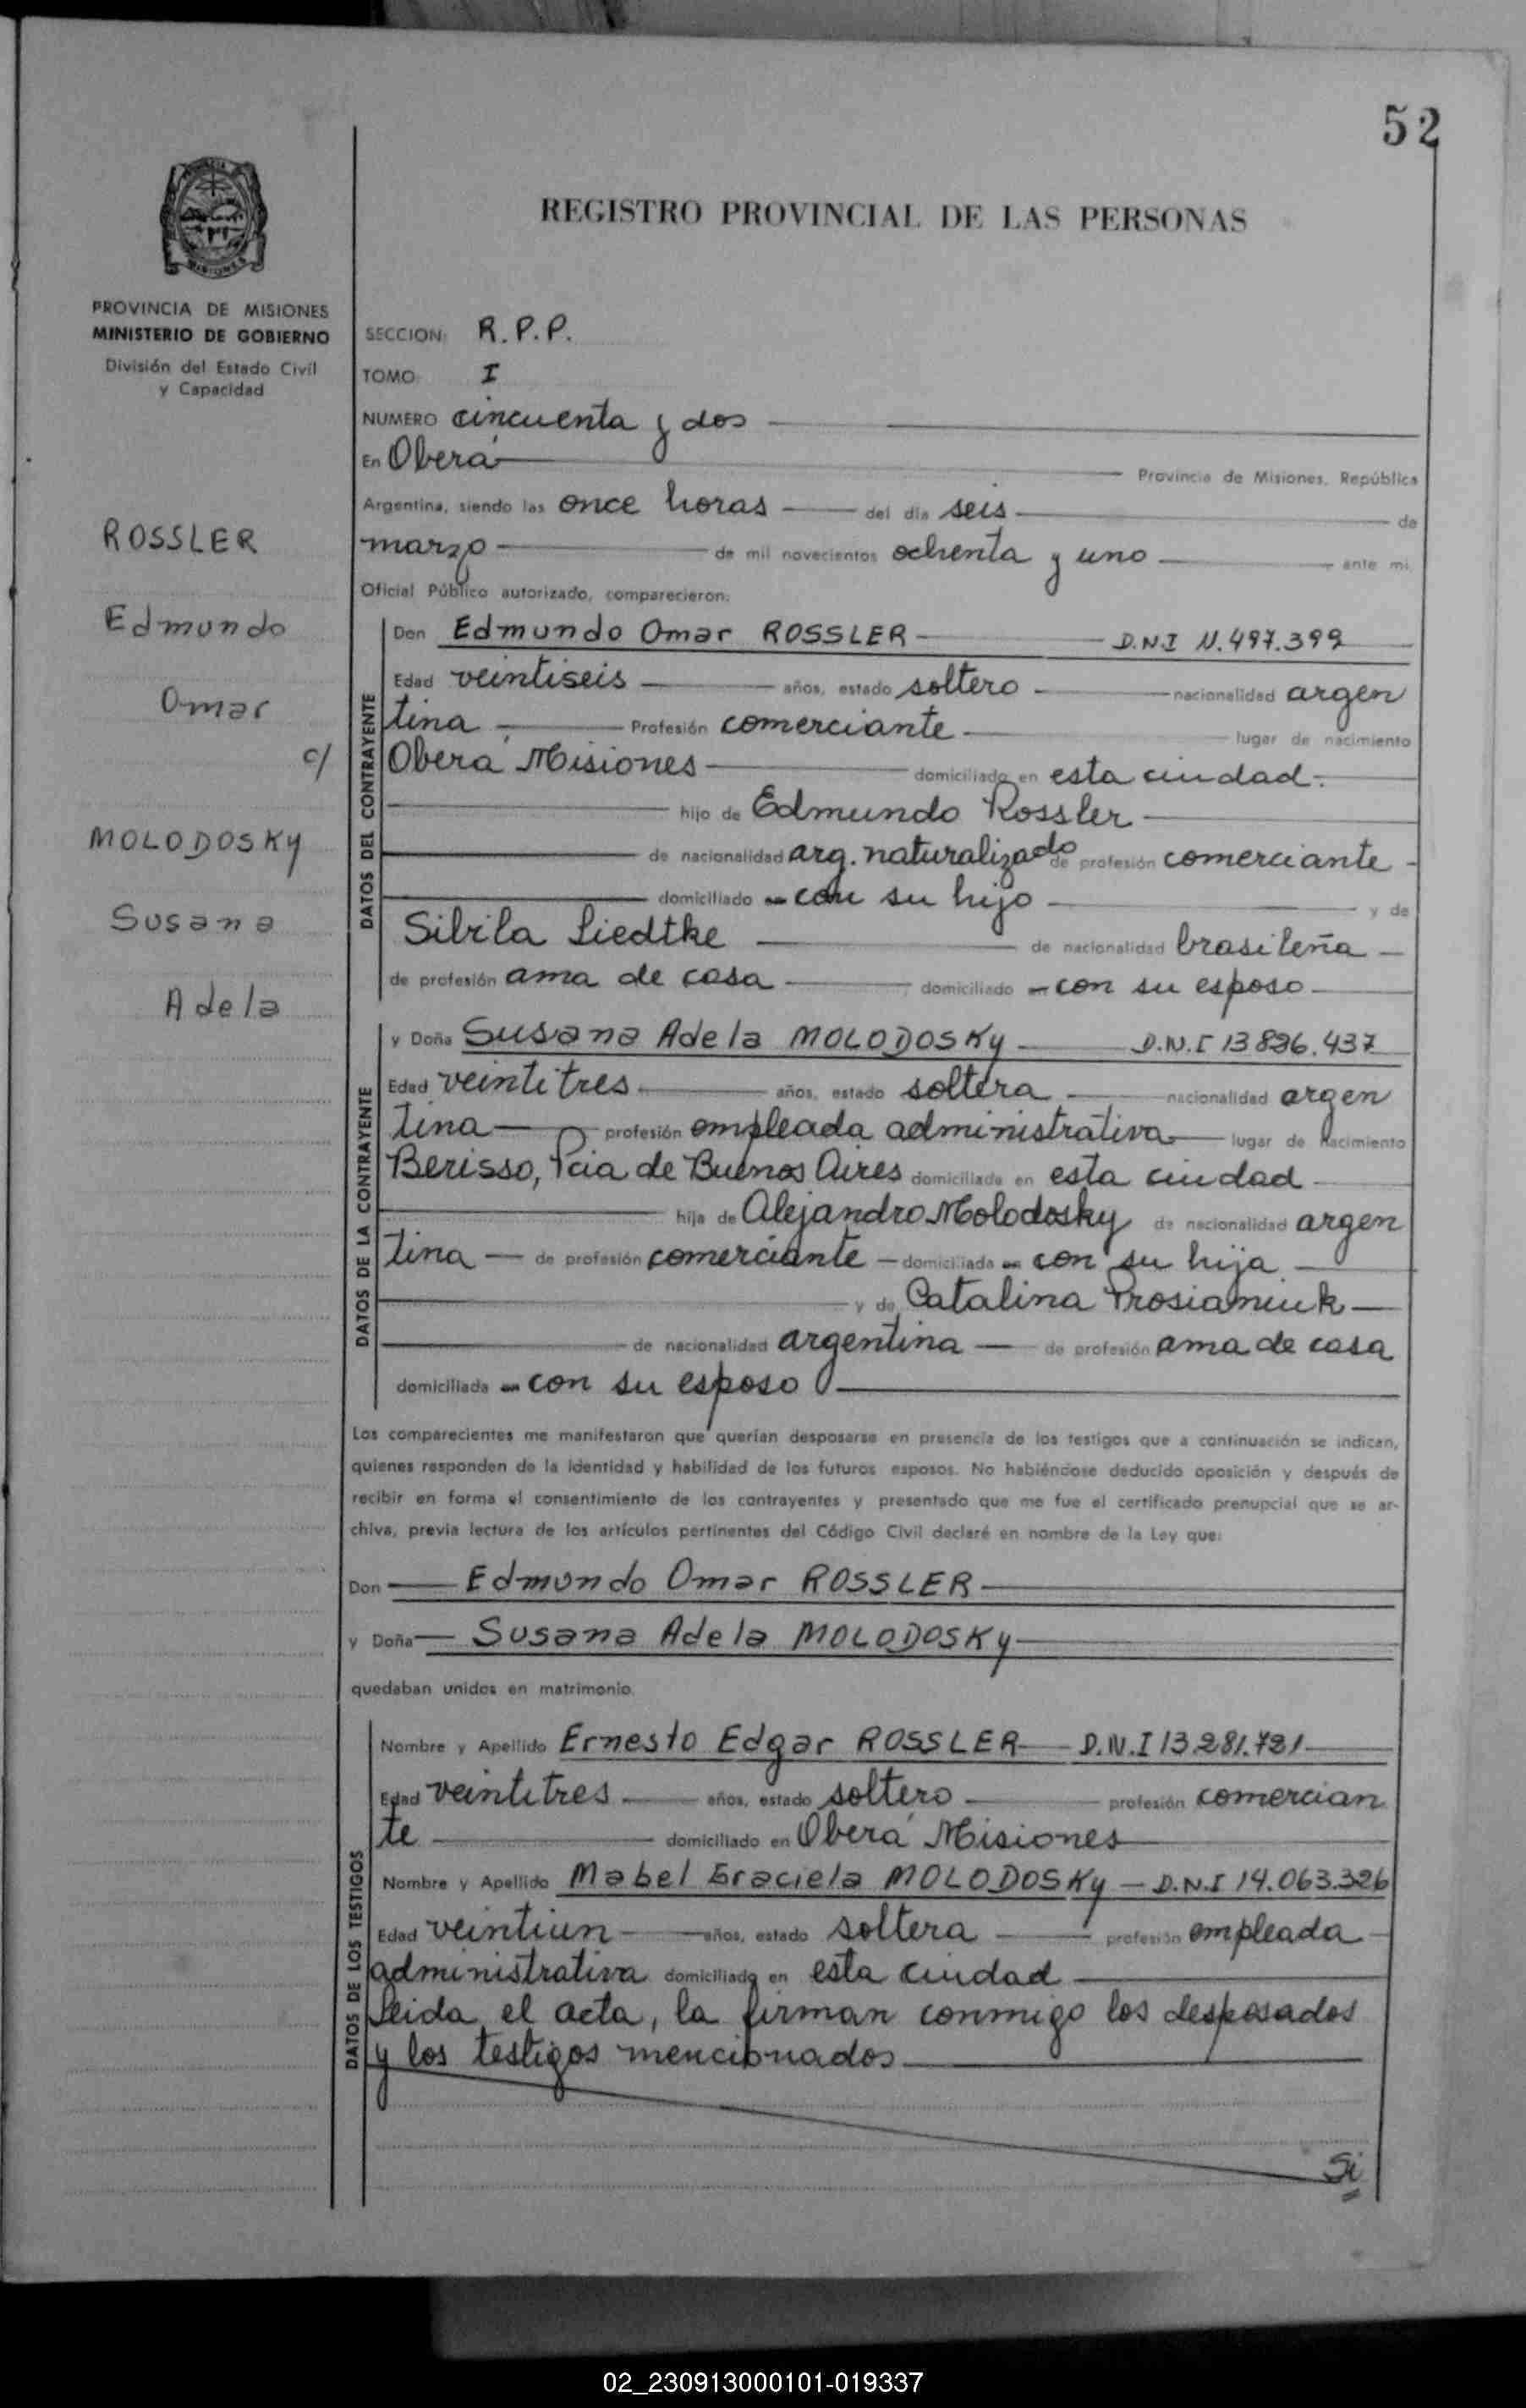 52
REGISTRO PROVINCIAL DE LAS PERSONAS
PROVINCIA DE MISIONES
MINISTERIO DE GOBIERNO
División del Estado Civil
y Capacidad
ROSSLER
Edmundo
Omar
c/
MOLODOSKY
Susana
Adela
SECCION: R.P.P.
TOMO: I
NUMERO cincuenta y dos
En Oberá Provincia de Misiones, República
Argentina, siendo las once horas del día seis de
marzo de mil novecientos ochenta y uno ante mi,
Oficial Público autorizado, comparecieron:
DATOS DEL CONTRAYENTE
Don Edmundo Omar ROSSLER D.N.I 11.497.399
Edad veintiseis años, estado soltero nacionalidad argen
tina Profesión comerciante lugar de nacimiento
Oberá Misiones domiciliado en esta ciudad.
hijo de Edmundo Rossler
de nacionalidad arg. naturalizado de profesión comerciante
domiciliado en con su hijo y de
Sibila Liedtke de nacionalidad brasileña
de profesión ama de casa domiciliado en con su esposo
DATOS DE LA CONTRAYENTE
y Doña Susana Adela MOLODOSKY D.N.I 13 836.437
Edad veintitres años, estado soltera nacionalidad argen
tina profesión empleada administrativa lugar de nacimiento
Berisso, Pcia de Buenos Aires domiciliada en esta ciudad
hija de Alejandro Molodosky de nacionalidad argen
tina de profesión comerciante domiciliada en con su hija
y de Catalina Prosianiuk
de nacionalidad argentina de profesión ama de casa
domiciliada en con su esposo
Los comparecientes me manifestaron que querían desposarse en presencia de los testigos que a continuación se indican,
quienes responden de la identidad y habilidad de los futuros esposos. No habiéndose deducido oposición y después de
recibir en forma el consentimiento de los contrayentes y presentado que me fue el certificado prenupcial que se ar-
chiva, previa lectura de los artículos pertinentes del Código Civil declaré en nombre de la Ley que:
Don Edmundo Omar ROSSLER
y Doña Susana Adela MOLODOSKY
quedaban unidos en matrimonio.
DATOS DE LOS TESTIGOS
Nombre y Apellido Ernesto Edgar ROSSLER D.N.I 13 281.721
Edad veintitres años, estado soltero profesión comercian
te domiciliado en Oberá Misiones
Nombre y Apellido Mabel Graciela MOLODOSKY D.N.I 14.063.326
Edad veintiun años, estado soltera profesión empleada
administrativa domiciliado en esta ciudad
Leida el acta, la firman conmigo los desposados
y los testigos mencionados
02_230913000101-019337